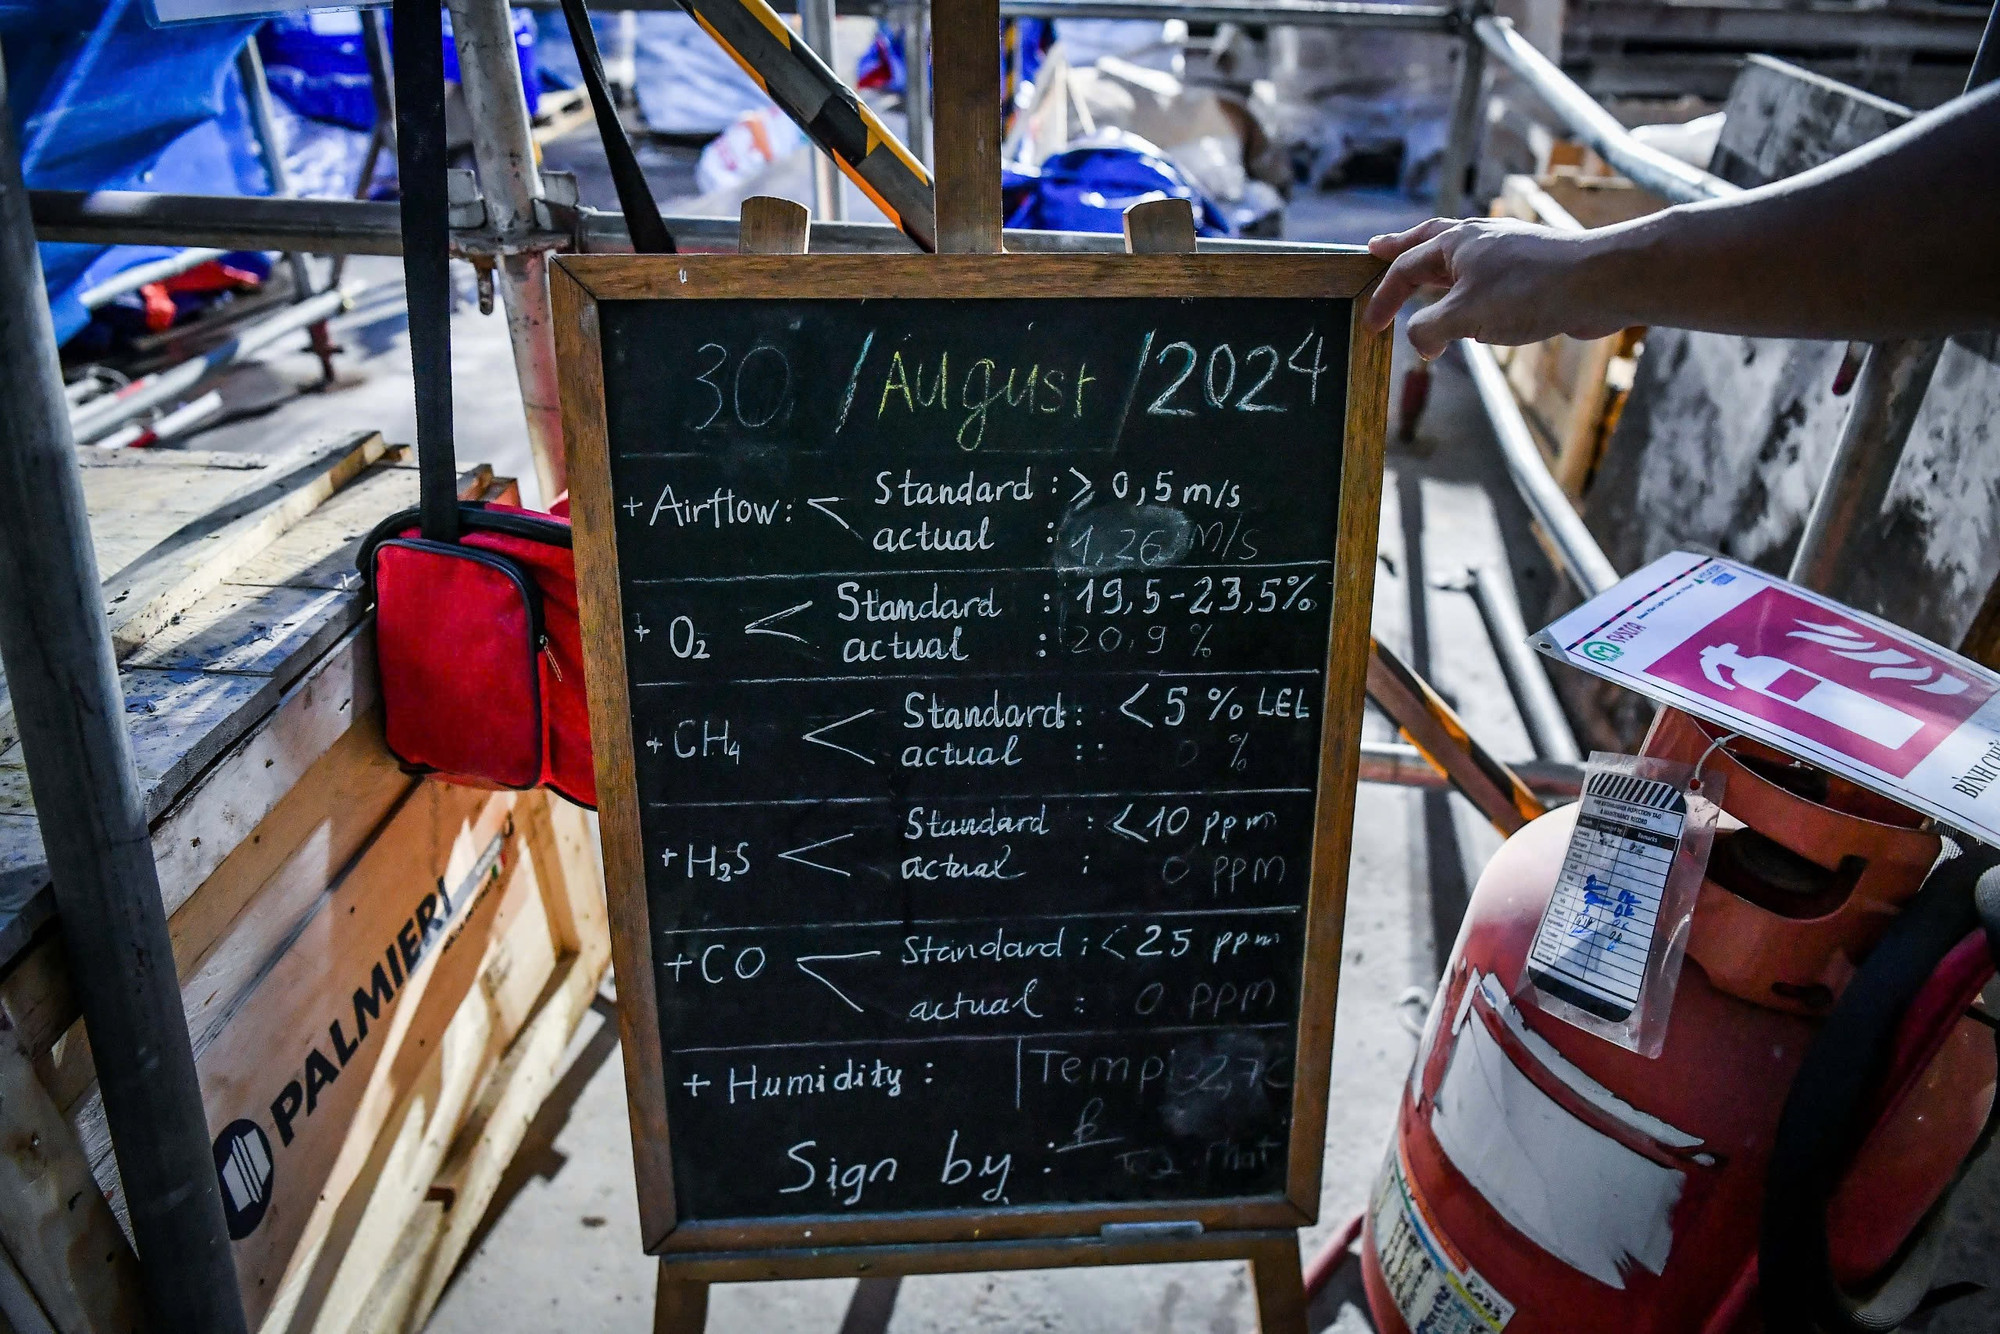 30 / August / 2024
+ Airflow: < Standard : ≥ 0,5 m/s
actual : 1,26 m/s
+ O₂ < Standard : 19,5-23,5%
actual : 20,9 %
+ CH₄ < Standard : < 5 % LEL
actual : : 0 %
+ H₂S < Standard : < 10 ppm
actual : 0 ppm
+ CO < Standard : < 25 ppm
actual : 0 ppm
+ Humidity : | Temp 32,7C
Sign by :
PALMIERI
BÌNH
FIRE EXTINGUISHER INSPECTION TAG
& MAINTENANCE RECORD